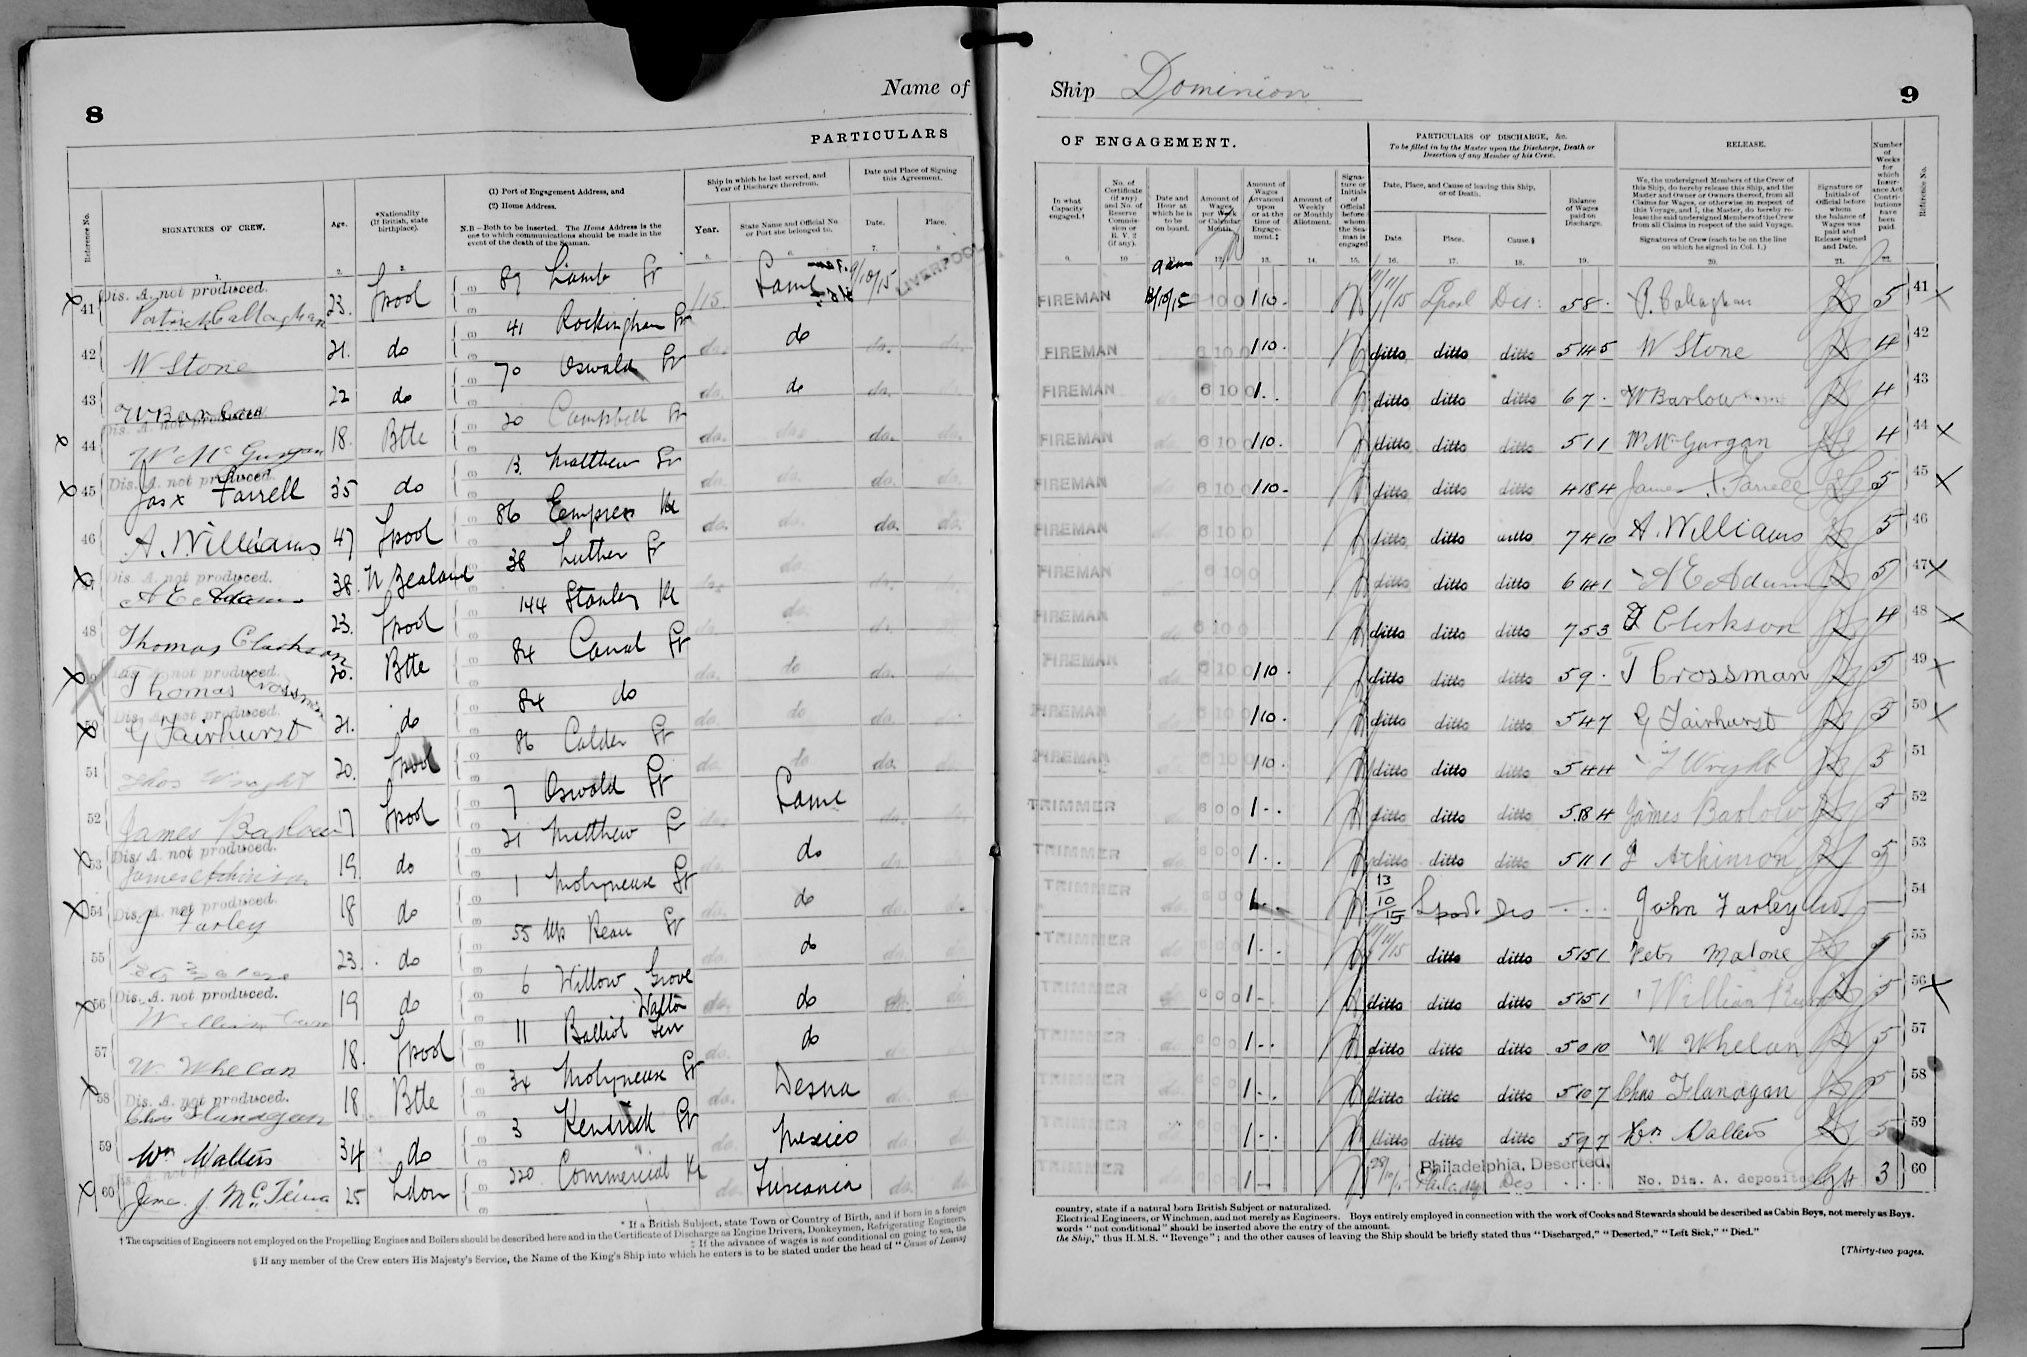 8
Name of
PARTICULARS
Reference No.
SIGNATURES OF CREW.
Age.
*Nationality (If British, state birthplace).
(1) Port of Engagement Address, and
(2) Home Address.
N.B.—Both to be inserted. The Home Address is the one to which communications should be made in the event of the death of the Seaman.
Ship in which he last served, and Year of Discharge therefrom.
Year.
State Name and Official No. or Port she belonged to.
Date and Place of Signing this Agreement.
Date.
Place.
41 Dis. A. not produced. Patrick Callaghan 23. Lpool 89 Lamb St /15 Same 9/10/15 LIVERPOOL
42 W Stone 21. do 41 Rockingham St do. do do. do.
43 W Barlow 22 do 70 Oswald St do. do do. do.
44 Dis. A. not produced W McGurgan 18. Btle 20 Campbell St do. do. do. do.
45 Dis. A. not produced. Jas x Farrell 35 do 13. Matthew St do. do. do. do.
46 A. Williams 47 Lpool 86 Empress Rd do. do. do. do.
47 Dis. A. not produced. A E Adams 38. N Zealand 38 Luther St do. do. do. do.
48 Thomas Clarkson 23. Lpool 144 Stanley Rd do. do. do. do.
49 Dis. A. not produced. Thomas Crossman 25. Btle 84 Canal St do. do do. do.
50 Dis. A. not produced. G Fairhurst 21. do 84 do do. do do. do.
51 Thos Wright 20. Lpool 86 Calder St do. do do. do.
52 James Barlow 17 Lpool 7 Oswald St do. Same do. do.
53 Dis. A. not produced. James Atkinson 19. do 21 Matthew St do. do do. do.
54 Dis. A. not produced. J Farley 18 do 1 Molyneuse St do. do do. do.
55 23. do 55 St do. do do. do.
56 Dis. A. not produced. William 19 do 6 Willow Grove Walton do. do do. do.
57 W. Whelan 18. Lpool 11 Balliol do. do do. do.
58 Dis. A. not produced. Chas Flanagan 18 Btle 34 Molyneuse St do. Desna do. do.
59 Wm Walters 34 do 3 Kendrick St do. Mexico do. do.
60 J. 25 Ldon 220 Commercial Rd do. Tuscania do. do.
* If a British Subject, state Town or Country of Birth, and if born in a foreign
† The capacities of Engineers not employed on the Propelling Engines and Boilers should be described here and in the Certificate of Discharge as Engine Drivers, Donkeymen, Refrigerating Engineers,
‡ If the advance of wages is not conditional on going to sea, the
§ If any member of the Crew enters His Majesty's Service, the Name of the King's Ship into which he enters is to be stated under the head of "Cause of Leaving
Ship Dominion
9
OF ENGAGEMENT.
PARTICULARS OF DISCHARGE, &c.
To be filled in by the Master upon the Discharge, Death or Desertion of any Member of his Crew.
RELEASE.
In what Capacity engaged.†
No. of Certificate (if any) and No. of Reserve Commission or R. V. 2 (if any).
Date and Hour at which he is to be on board.
Amount of Wages per Week or Calendar Month.
Amount of Wages Advanced upon or at the time of Engagement.‡
Amount of Weekly or Monthly Allotment.
Signature or Initials of Official before whom the Seaman is engaged
Date, Place, and Cause of leaving this Ship, or of Death.
Date.
Place.
Cause.§
Balance of Wages paid on Discharge.
We, the undersigned Members of the Crew of this Ship, do hereby release this Ship, and the Master and Owner or Owners thereof, from all Claims for Wages, or otherwise, in respect of this Voyage, and I, the Master, do hereby release the said undersigned Members of the Crew from all Claims in respect of the said Voyage.
Signatures of Crew (each to be on the line on which he signed in Col. 1.)
Signature or Initials of Official before whom the balance of Wages was paid and Release signed and Date.
Number of Weeks for which Insurance Act Contributions have been paid.
Reference No.
FIREMAN 6 10 0 1/10. 11/11/15 Lpool Dis: 58. P. Callaghan 5 41
FIREMAN 6 10 0 1/10. ditto ditto ditto 5 14 5 W Stone 4 42
FIREMAN 6 10 0 1.. ditto ditto ditto 6 7. W Barlow 4 43
FIREMAN 6 10 0 1/10. ditto ditto ditto 5 11 W McGurgan 4 44
FIREMAN 6 10 0 1/10. ditto ditto ditto 4 18 4 James X Farrell 5 45
FIREMAN 6 10 0 ditto ditto ditto 7 4 10 A. Williams 5 46
FIREMAN 6 10 0 ditto ditto ditto 6 14 1 A E Adams 5 47
FIREMAN 6 10 0 ditto ditto ditto 7 5 3 T Clarkson 4 48
FIREMAN 6 10 0 1/10. ditto ditto ditto 5 9. T Crossman 5 49
FIREMAN 6 10 0 1/10. ditto ditto ditto 5 4 7 G Fairhurst 5 50
FIREMAN 6 10 0 1/10. ditto ditto ditto 5 4 4 T Wright 5 51
TRIMMER 6 0 0 1.. ditto ditto ditto 5 18 4 James Barlow 5 52
TRIMMER 6 0 0 1.. ditto ditto ditto 5 11 1 J Atkinson 5 53
TRIMMER 6 0 0 1.. 13/10/15 Lpool Dis John Farley 54
TRIMMER 6 0 0 1.. 11/11/15 ditto ditto 5 15 1 Peter Malone 5 55
TRIMMER 6 0 0 1.. ditto ditto ditto 5 15 1 William 5 56
TRIMMER 6 0 0 1.. ditto ditto ditto 5 0 10 W Whelan 5 57
TRIMMER 6 0 0 1.. ditto ditto ditto 5 10 7 Chas Flanagan 5 58
TRIMMER 6 0 0 1.. ditto ditto ditto 5 9 7 Wm Walters 5 59
TRIMMER 1.. 28/10/15 Philadelphia, Deserted. Des No. Dis. A. deposited 3 60
country, state if a natural born British Subject or naturalized.
Electrical Engineers, or Winchmen, and not merely as Engineers. Boys entirely employed in connection with the work of Cooks and Stewards should be described as Cabin Boys, not merely as Boys.
words "not conditional" should be inserted above the entry of the amount.
the Ship," thus H.M.S. "Revenge"; and the other causes of leaving the Ship should be briefly stated thus "Discharged," "Deserted," "Left Sick," "Died."
[Thirty-two pages.